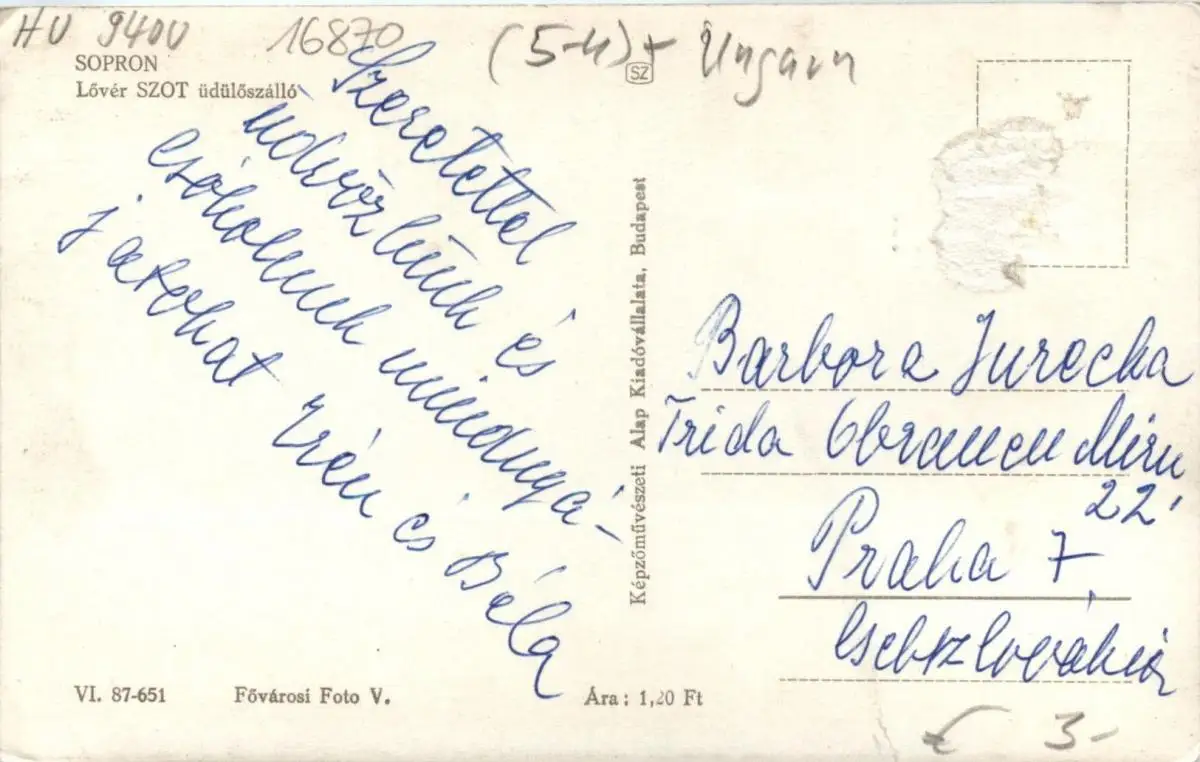 HU 9400
16870
(5-4)+ Ungarn
SOPRON
Lővér SZOT üdülőszálló
SZ
Szeretettel
üdvözlünk és
csókolunk mindnyá-
jatokat
Irén és Béla
Képzőművészeti Alap Kiadóvállalata, Budapest
Barbora Jurecka
Trida Obrancu Miru
22
Praha 7
Csehszlovákia
VI. 87-651
Fővárosi Foto V.
Ára: 1,20 Ft
€ 3-